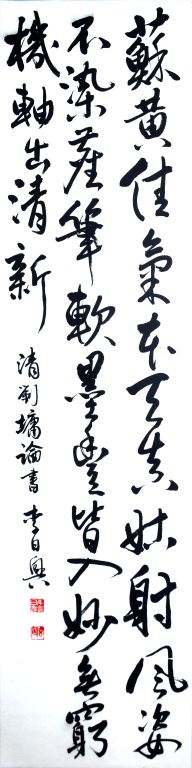 蘇黃佳氣本天真姑射風姿
不染塵筆軟墨豐皆入妙無窮
機軸出清新
清劉墉論書 李日興